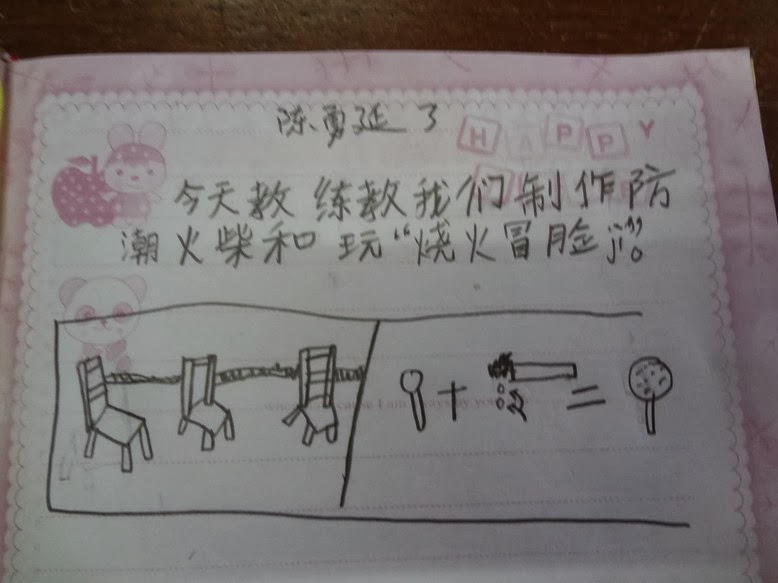 陈勇延 3
HAPPY
今天教练教我们制作防
潮火柴和玩“烧火冒脸ji”。